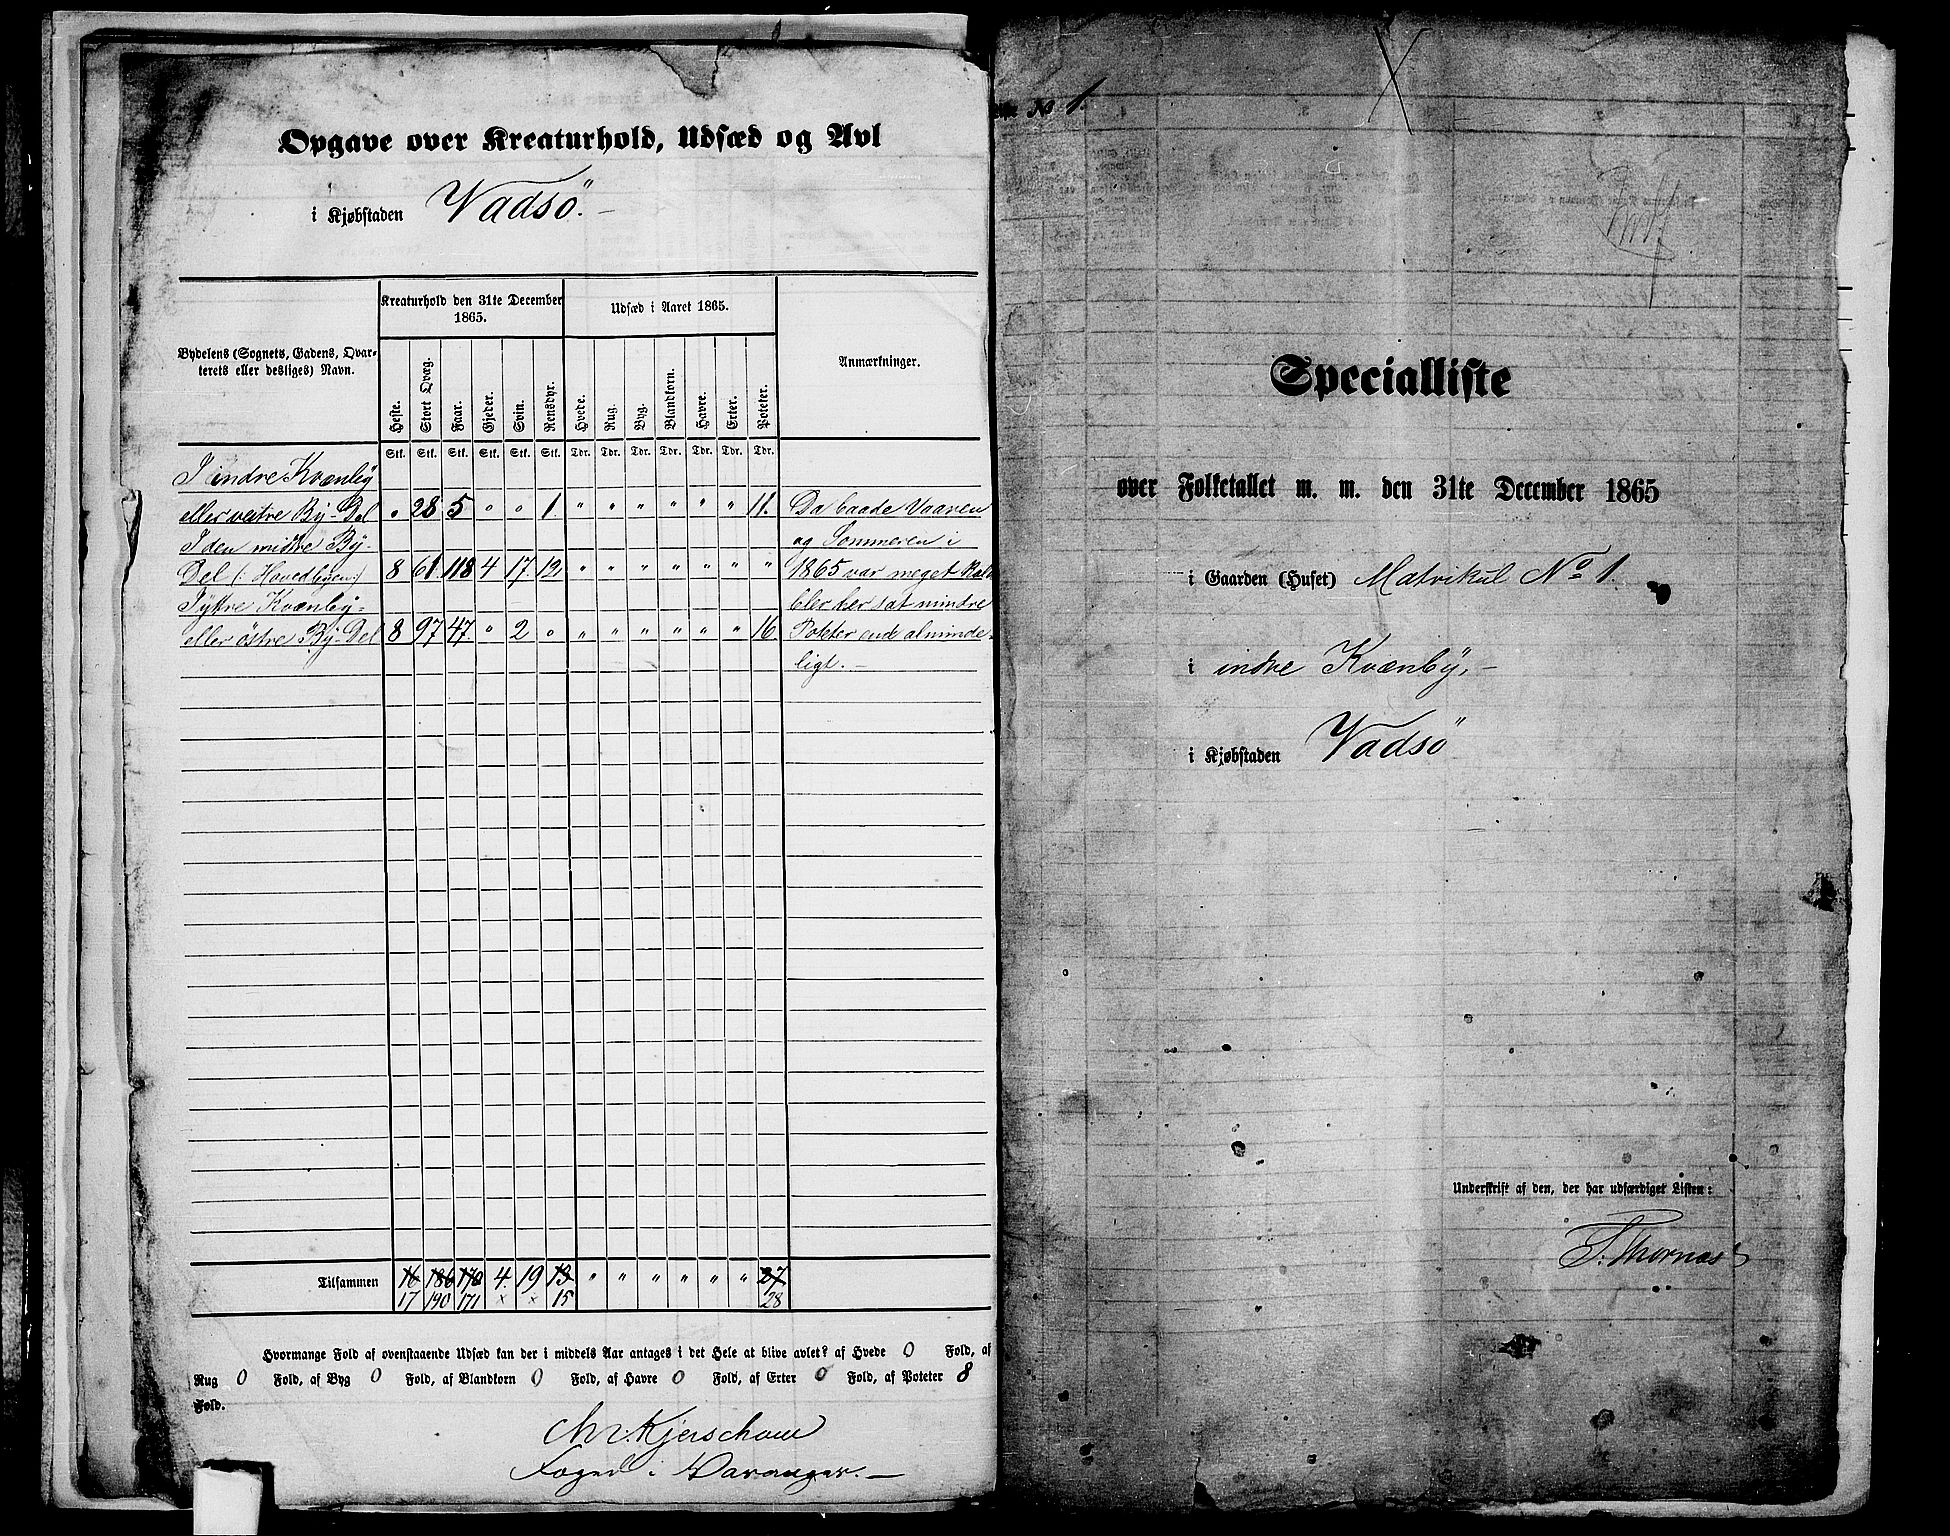 Opgave over Kreaturhold, Udsæd og Avl
i Kjøbstaden Vadsö.-
Bydelens (Sognets, Gadens, Qvarterets eller desliges) Navn.
Kreaturhold den 31te December 1865.
Udsæd i Aaret 1865.
Anmærkninger.
Heste. Stort Qvæg. Faar. Gjeder. Svin. Rensdyr. Hvede. Rug. Byg. Blandkorn. Havre. Erter. Poteter.
Stk. Stk. Stk. Stk. Stk. Stk. Tdr. Tdr. Tdr. Tdr. Tdr. Tdr. Tdr.
I indre Kvænby
eller vestre By-Del " 28 5 " " 1. " " " " " " 11. Da baade Vaaren
I den midtre By- og Sommeren i
Del (: Hovedbyen:) 8 61. 118 4 17. 12. " " " " " " " 1865 var meget
I ytre Kvænby- blev her sat mindre
eller östre By-Del 8 97 47 " 2 " " " " " " " 16. Poteter end alminde-
ligt.-
Tilsammen 16 186 170 4. 19 13 " " " " " " 27
17 190 171 × × 15 28
Hvormange Fold af ovenstaaende Udsæd kan der i middels Aar antages i det Hele at blive avlet? af Hvede 0 Fold, af
Rug 0 Fold, af Byg 0 Fold, af Blandkorn 0 Fold, af Havre 0 Fold, af Erter 0 Fold, af Poteter 8
Fold.
Kjerschow
Foged i Varanger.-
No 1.
Specialliste
over Folketallet m. m. den 31te December 1865
i Gaarden (Huset) Matrikul No 1.
i indre Kvænby,-
i Kjøbstaden Vadsö
Underskrift af den, der har udfærdiget Listen: